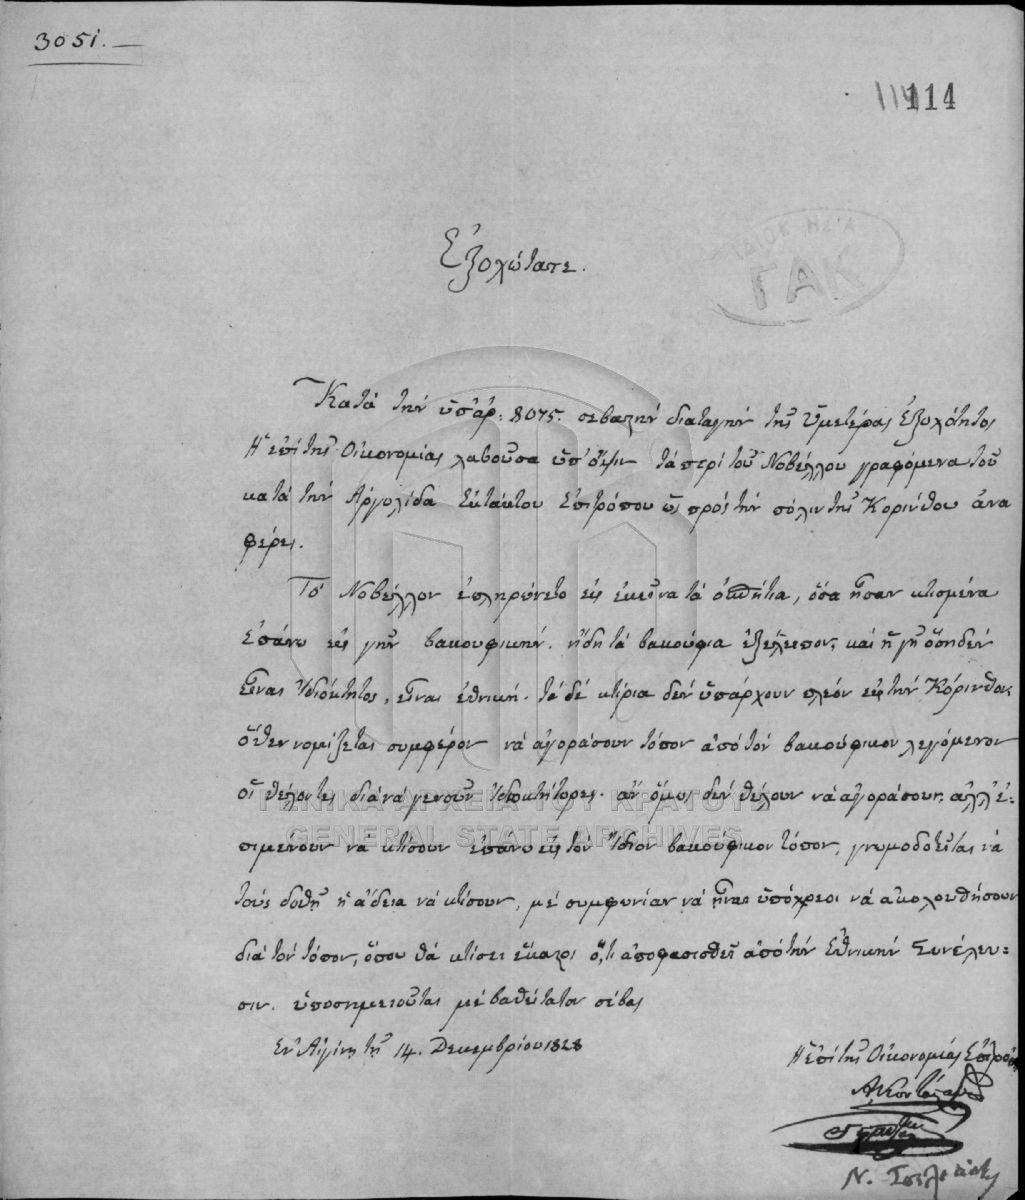 3051.
114
Ἐξοχώτατε.
Κατὰ τὴν ὑπ' ἀρ: 8075. σεβαστὴν διαταγὴν τῆς Ὑμετέρας Ἐξοχότητος
Ἡ ἐπὶ τῆς Οἰκονομίας λαβοῦσα ὑπ' ὄψιν τὰ περὶ τοῦ Νοβέλλου γραφόμενα τοῦ
κατὰ τὴν Ἀργολίδα Ἐκτάκτου Ἐπιτρόπου ὡς πρὸς τὴν πόλιν τῆς Κορίνθου ἀνα
φέρει.
Τὸ Νοβέλλον ἐπληρώνετο εἰς ἐκεῖνα τὰ ὀσπήτια, ὅσα ἦσαν κτισμένα
ἐπάνω εἰς γῆν βακουφικήν. ἤδη τὰ βακούφια ἐξέλειπον, καὶ ἡ γῆ ὅση δὲν
εἶναι ἰδιόκτητος, εἶναι ἐθνική. τὰ δὲ κτίρια δὲν ὑπάρχουν πλέον εἰς τὴν Κόρινθον,
ὅθεν νομίζεται συμφέρον νὰ ἀγοράσουν τόπον ἀπὸ τὸν βακούφικον λεγόμενον
οἱ θέλοντες διὰ νὰ γενοῦν ἰδιοκτήτορες. ἂν ὅμως δὲν θέλουν νὰ ἀγοράσουν, ἀλλ' ἐ-
πιμένουν νὰ κτίσουν ἐπάνω εἰς τὸν ἴδιον βακούφικον τόπον, γνωμοδοτεῖται νὰ
τοὺς δοθῇ ἡ ἄδεια νὰ κτίσουν, μὲ συμφωνίαν νὰ ἦναι ὑπόχρεοι νὰ ἀκολουθήσουν
διὰ τὸν τόπον, ὅπου θὰ κτίσει ἕκαστος ὅ,τι ἀποφασισθεῖ ἀπὸ τὴν Ἐθνικὴν Συνέλευ-
σιν. ὑποσημειοῦται μὲ βαθύτατον σέβας
Ἐν Αἰγίνῃ τῇ 14. Δεκεμβρίου 1828
Ἡ ἐπὶ τῆς Οἰκονομίας Ἐπιτροπὴ
Α. Κοντόσταυλος
Ν. Σπηλιάδης
ΓΑΚ
ΓΕΝΙΚΑ ΑΡΧΕΙΑ ΤΟΥ ΚΡΑΤΟΥΣ
GENERAL STATE ARCHIVES